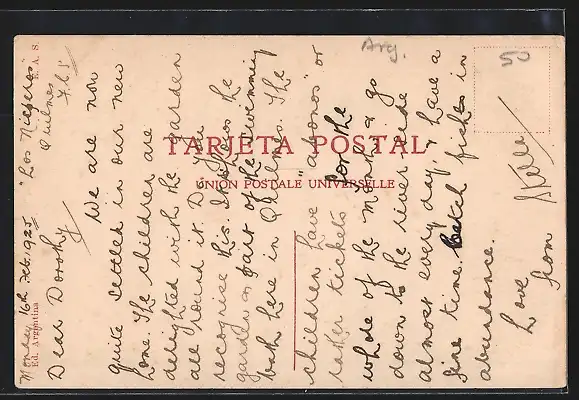 "Los Nísperos"
Quilmes
F.C.S.
Monday 16th Feb. 1925
Dear Dorothy
We are now
quite settled in our new
home. The children are
delighted with the garden
all round it. Do you
recognise this. It shows the
garden & part of the swimming
bath here in Quilmes. The
children have "abonos" or
rather tickets for the
whole of the month & go
down to the river side
almost every day, & have a
fine time. Catch fishes in
abundance.
Love from
Stella
TARJETA POSTAL
UNION POSTALE UNIVERSELLE
Ed. Argentina
E. A. S.
Arg.
50